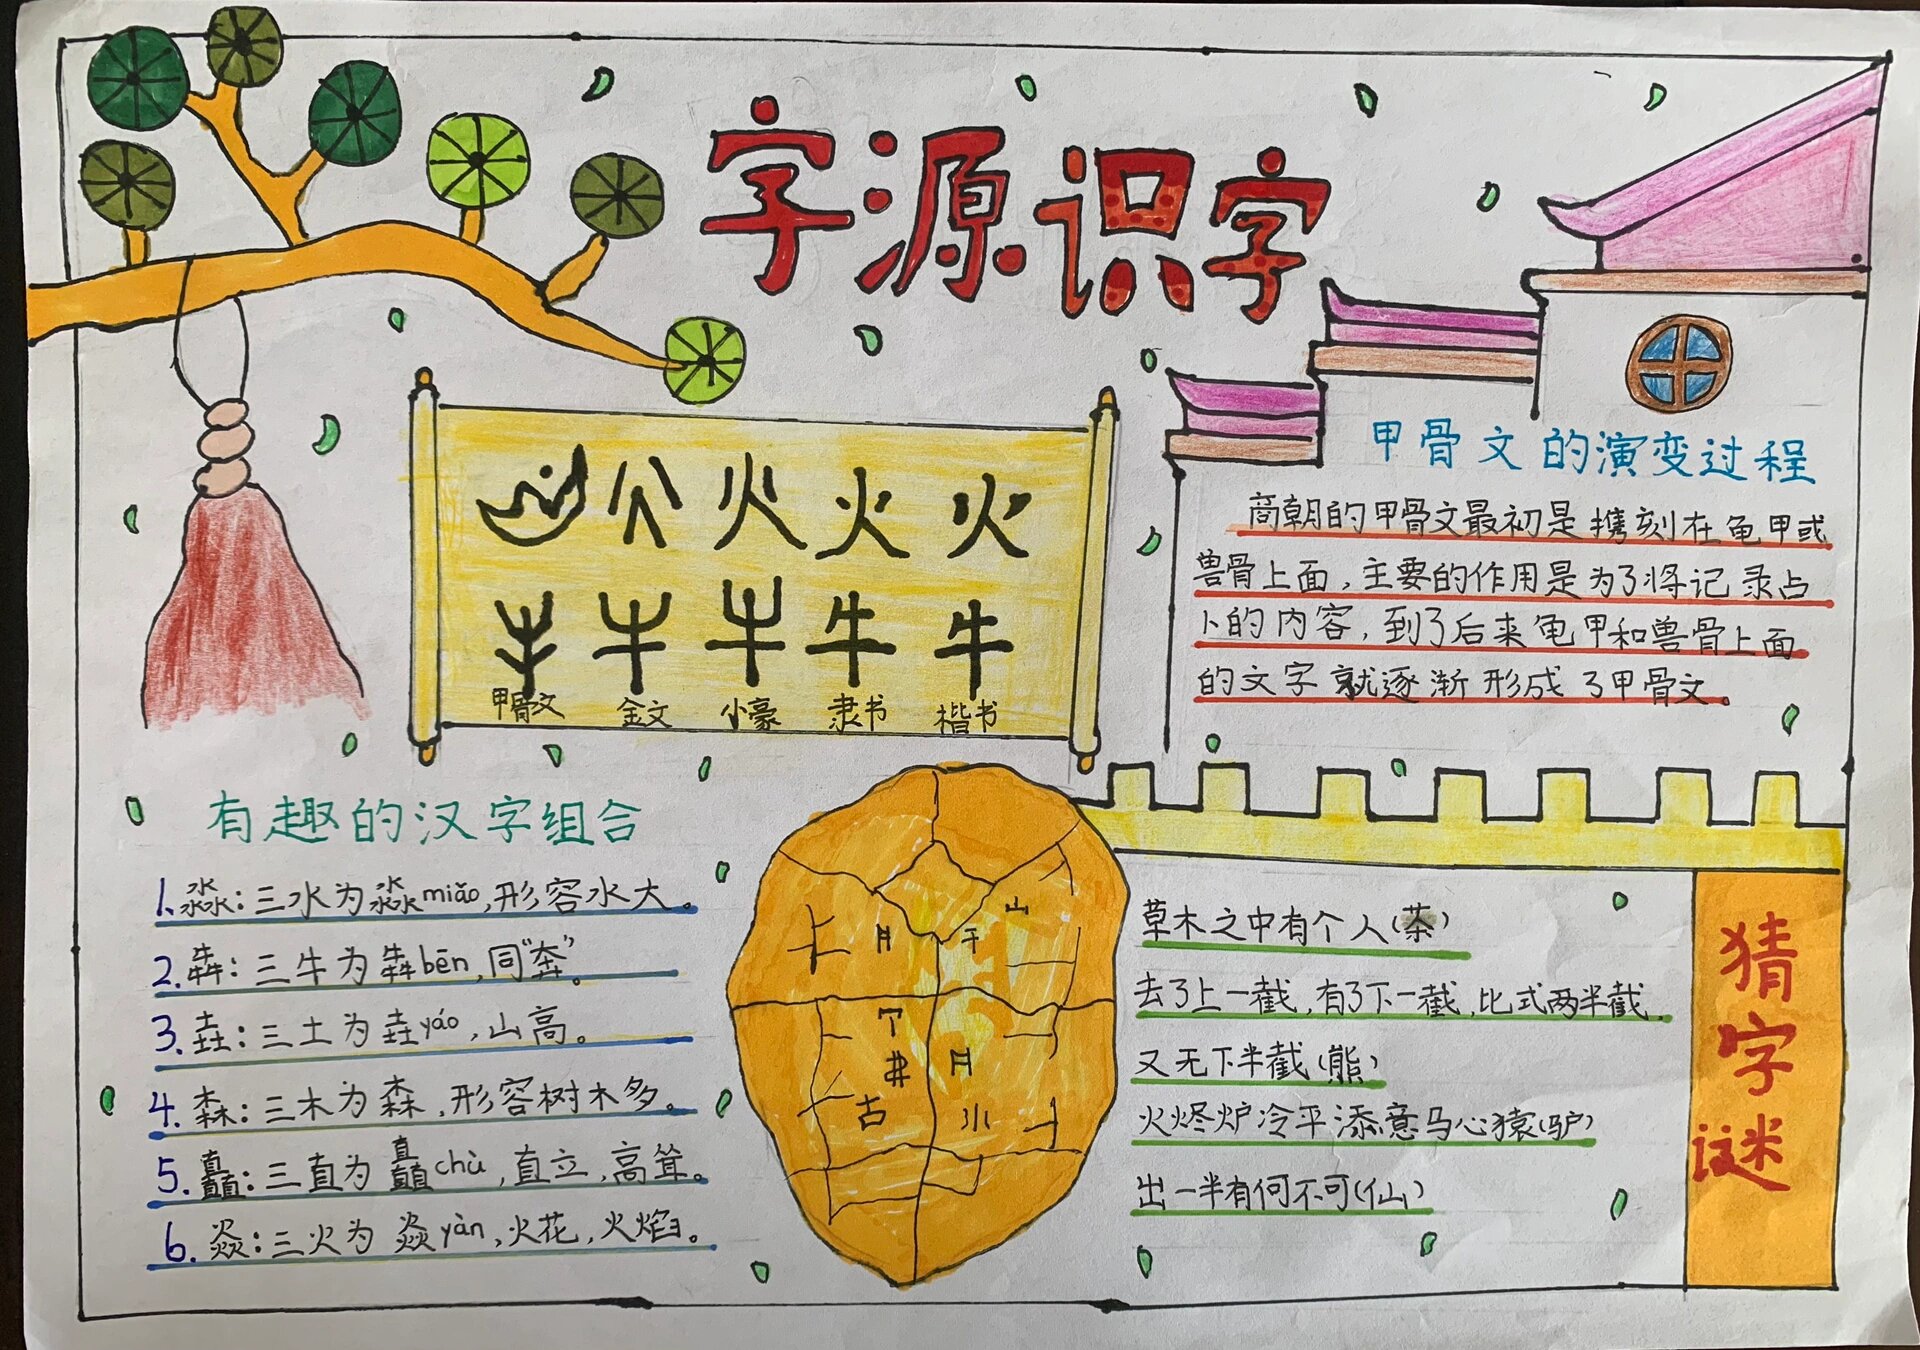 字源识字
火 火
牛 牛
甲骨文 金文 小豪 隶书 楷书
甲骨文的演变过程
商朝的甲骨文最初是携刻在龟甲或
兽骨上面，主要的作用是为了将记录占
卜的内容，到了后来龟甲和兽骨上面
的文字就逐渐形成了甲骨文。
有趣的汉字组合
1.淼：三水为淼miǎo，形容水大。
2.犇：三牛为犇bēn，同“奔”。
3.垚：三土为垚yáo，山高。
4.森：三木为森，形容树木多。
5.矗：三直为矗chù，直立，高耸。
6.焱：三火为焱yàn，火花，火焰。
山
古
草木之中有个人(茶)
去了上一截，有了下一截，比式两半截，
又无下半截(熊)
火烬炉冷平添意马心猿(驴)
出一半有何不可(仙)
猜字谜